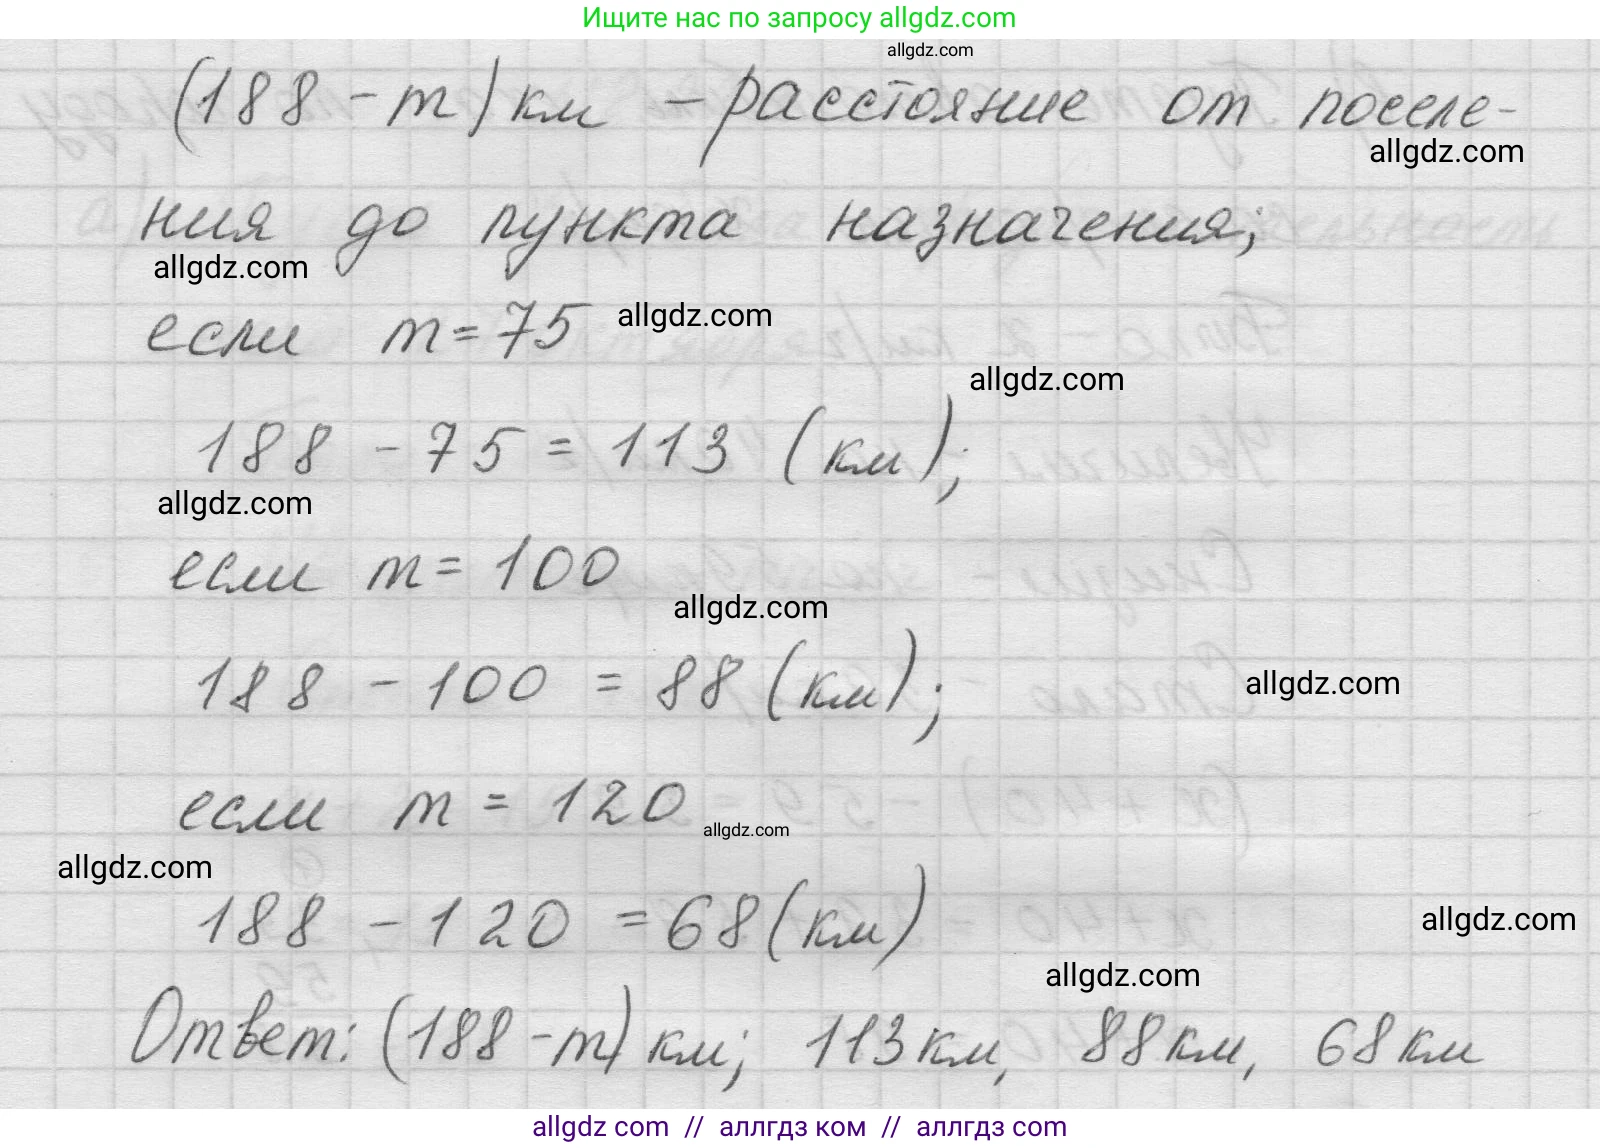 Ищите нас по запросу allgdz.com
allgdz.com
(188 - m) км - расстояние от поселе-
allgdz.com
ния до пункта назначения;
allgdz.com
если m = 75 allgdz.com
allgdz.com
188 - 75 = 113 (км);
allgdz.com
если m = 100
allgdz.com
188 - 100 = 88 (км);
allgdz.com
если m = 120
allgdz.com
allgdz.com
188 - 120 = 68 (км)
allgdz.com
allgdz.com
Ответ: (188 - m) км; 113 км, 88 км, 68 км
allgdz com // аллгдз ком // аллгдз com